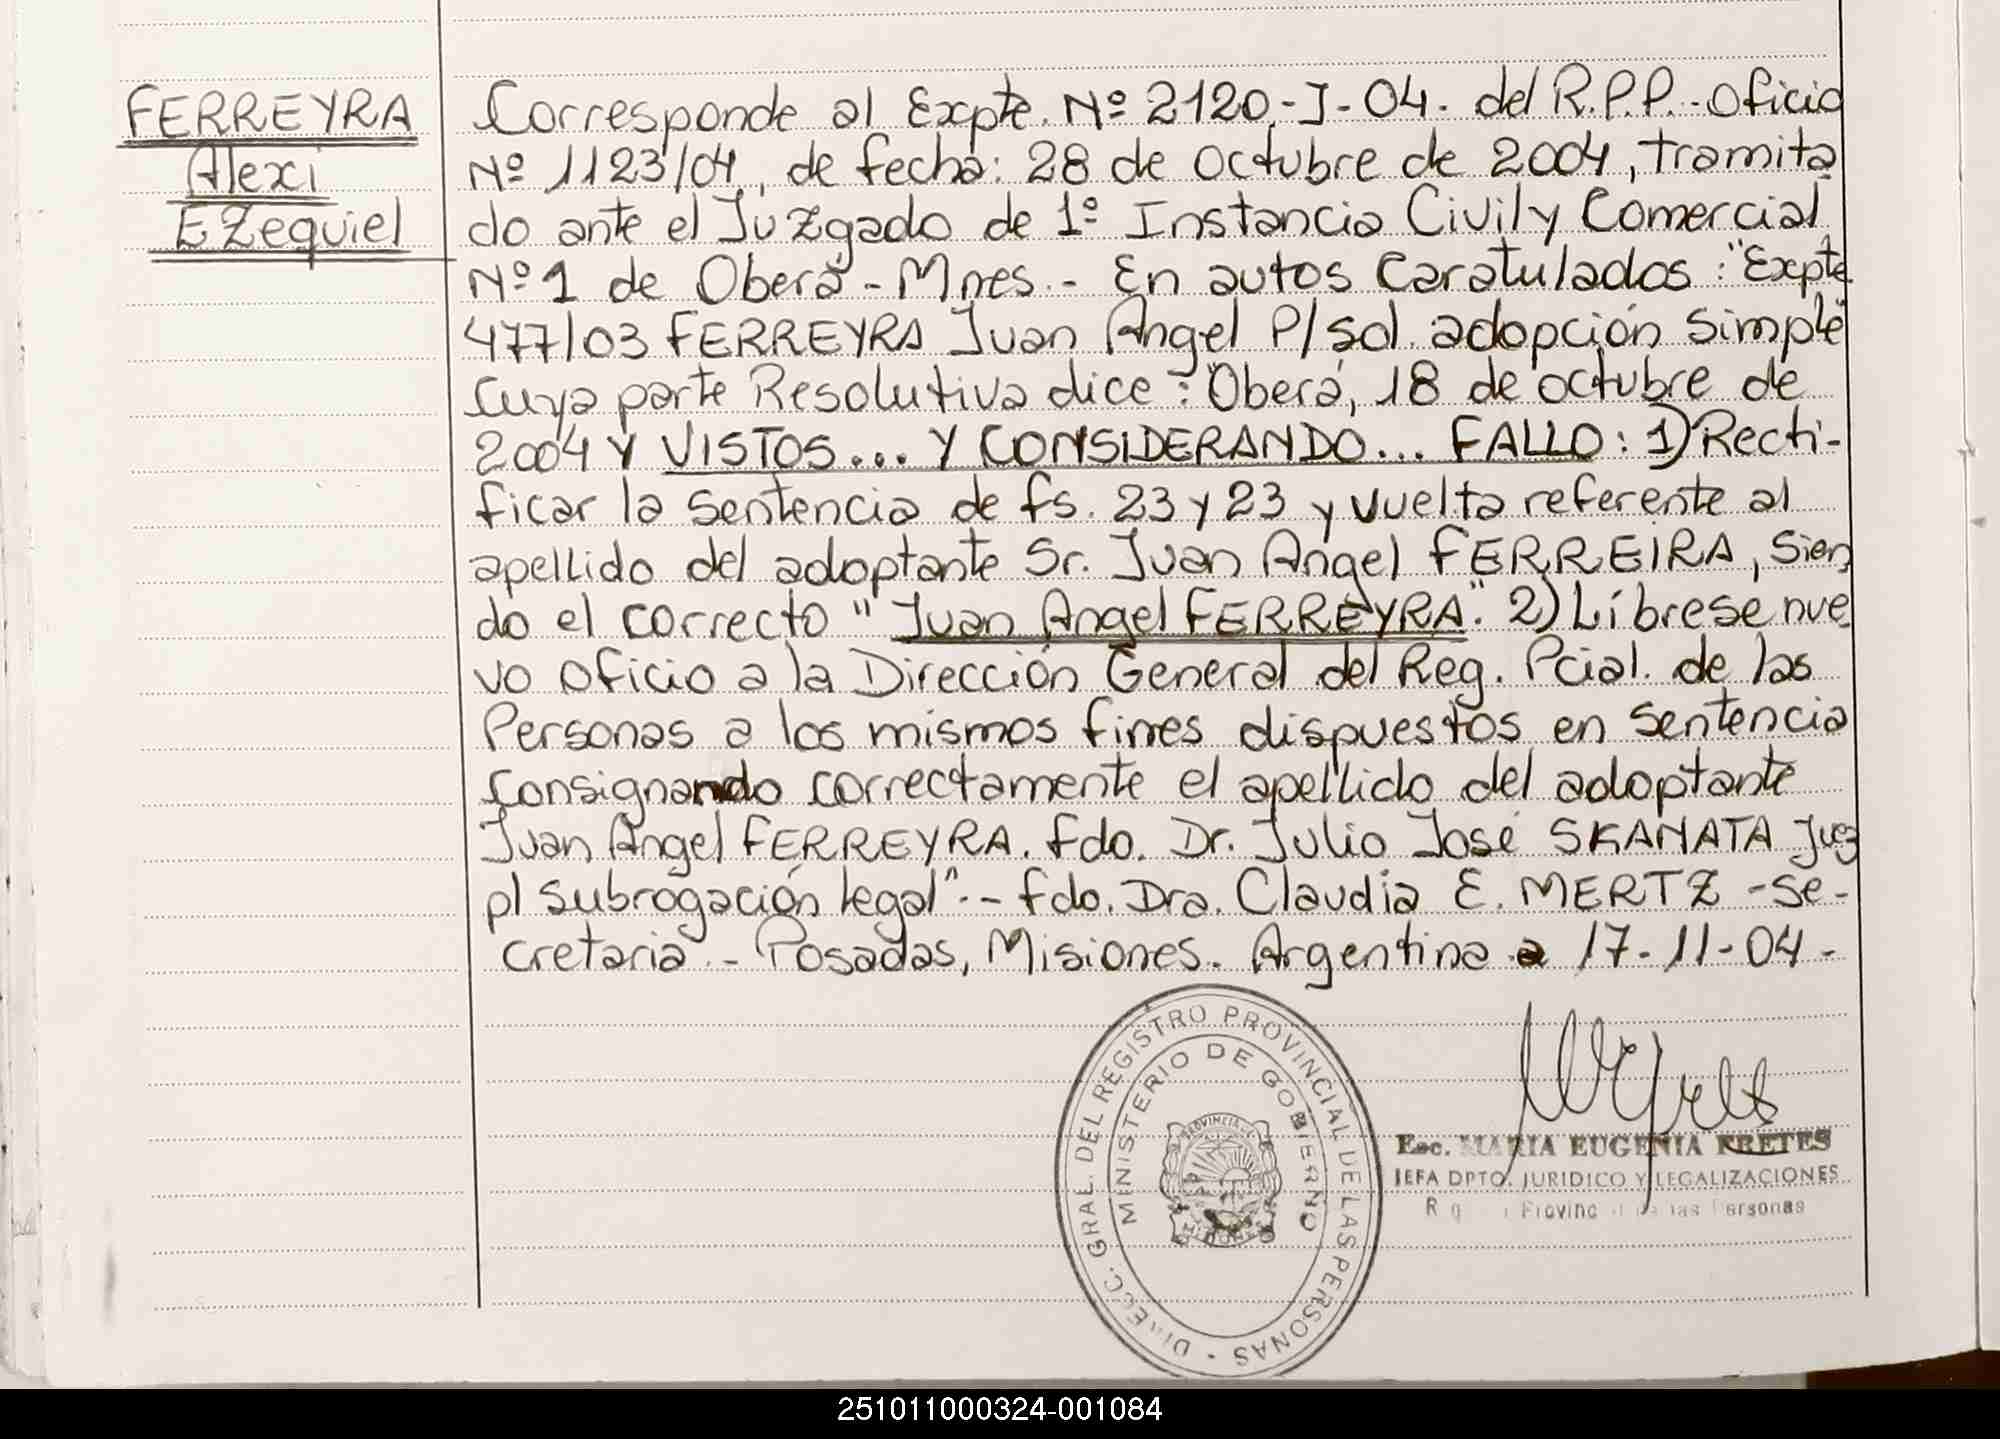 FERREYRA
Alexi
Ezequiel
Corresponde al Expte. Nº 2120-J-04. del R.P.P.-Oficio
Nº 1123/04, de fecha: 28 de octubre de 2004, tramita
do ante el Juzgado de 1º Instancia Civil y Comercial
Nº 1 de Oberá - Mnes. - En autos caratulados: "Expte
477/03 FERREYRA Juan Angel P/sol. adopción simple"
cuya parte Resolutiva dice: "Oberá, 18 de octubre de
2004 Y VISTOS... Y CONSIDERANDO... FALLO: 1) Recti-
ficar la sentencia de fs. 23 y 23 y vuelta referente al
apellido del adoptante Sr. Juan Angel FERREIRA, sien
do el correcto "Juan Angel FERREYRA". 2) Líbrese nue
vo oficio a la Dirección General del Reg. Pcial. de las
Personas a los mismos fines dispuestos en sentencia
consignando correctamente el apellido del adoptante
Juan Angel FERREYRA. Fdo. Dr. Julio José SKANATA Juez
p/ subrogación legal".- Fdo. Dra. Claudia E. MERTZ - Se-
cretaria. - Posadas, Misiones. Argentina a 17-11-04-
DIRECC. GRAL. DEL REGISTRO PROVINCIAL DE LAS PERSONAS -
MINISTERIO DE GOBIERNO
PROVINCIA DE
MISIONES
Esc. MARIA EUGENIA FRETES
JEFA DPTO. JURIDICO Y LEGALIZACIONES
Personas
251011000324-001084